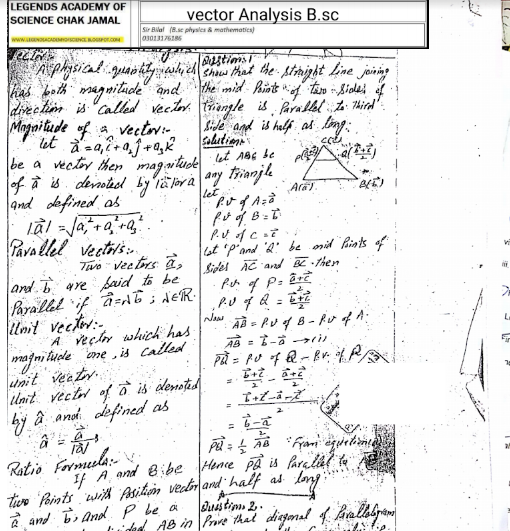 LEGENDS ACADEMY OF
SCIENCE CHAK JAMAL
WWW.LEGENDSACADEMYOFSCIENCE.BLOGSPOT.COM
vector Analysis B.sc
Sir Bilal (B.sc physics & mathematics)
03013176186
Vector:-
A Physical quantity which
has both magnitude and
direction is called vector.
Magnitude of a vector:-
let a⃗ = a₁î + a₂ĵ + a₃k̂
be a vector then magnitude
of a⃗ is denoted by |a⃗| or a
and defined as
|a⃗| = √a₁² + a₂² + a₃²
Parallel vectors:-
Two vectors a⃗,
and b⃗ are said to be
Parallel if a⃗ = λb⃗ ; λ∈R
Unit vector:-
A vector which has
magnitude one, is called
unit vector.
Unit vector of a⃗ is denoted
by â and defined as
â = a⃗/|a⃗|
Ratio Formula:-
If A and B be
two Points with Position vector
a⃗ and b⃗, and P be a
AB in
Question:1
Show that the straight line joining
the mid Points of two sides of
triangle is Parallel to third
side and is half as long.
Solution:-
let ABC be
any triangle
let
P.v of A = a⃗
P.v of B = b⃗
P.v of C = c⃗
C(c⃗)
Q(b⃗+c⃗/2)
A(a⃗) B(b⃗)
let 'P' and 'Q' be mid Points of
sides AC and BC then
P.v of P = a⃗+c⃗/2
P.v of Q = b⃗+c⃗/2
Now AB = P.v of B - P.v of A
AB = b⃗ - a⃗ → (i)
PQ = P.v of Q - P.v of P
= b⃗+c⃗/2 - a⃗+c⃗/2
= b⃗+c⃗-a⃗-c⃗/2
= b⃗-a⃗/2
PQ = 1/2 AB From equation
Hence PQ is Parallel to
and half as long
Question 2.
Prove that diagonal of Parallelogram